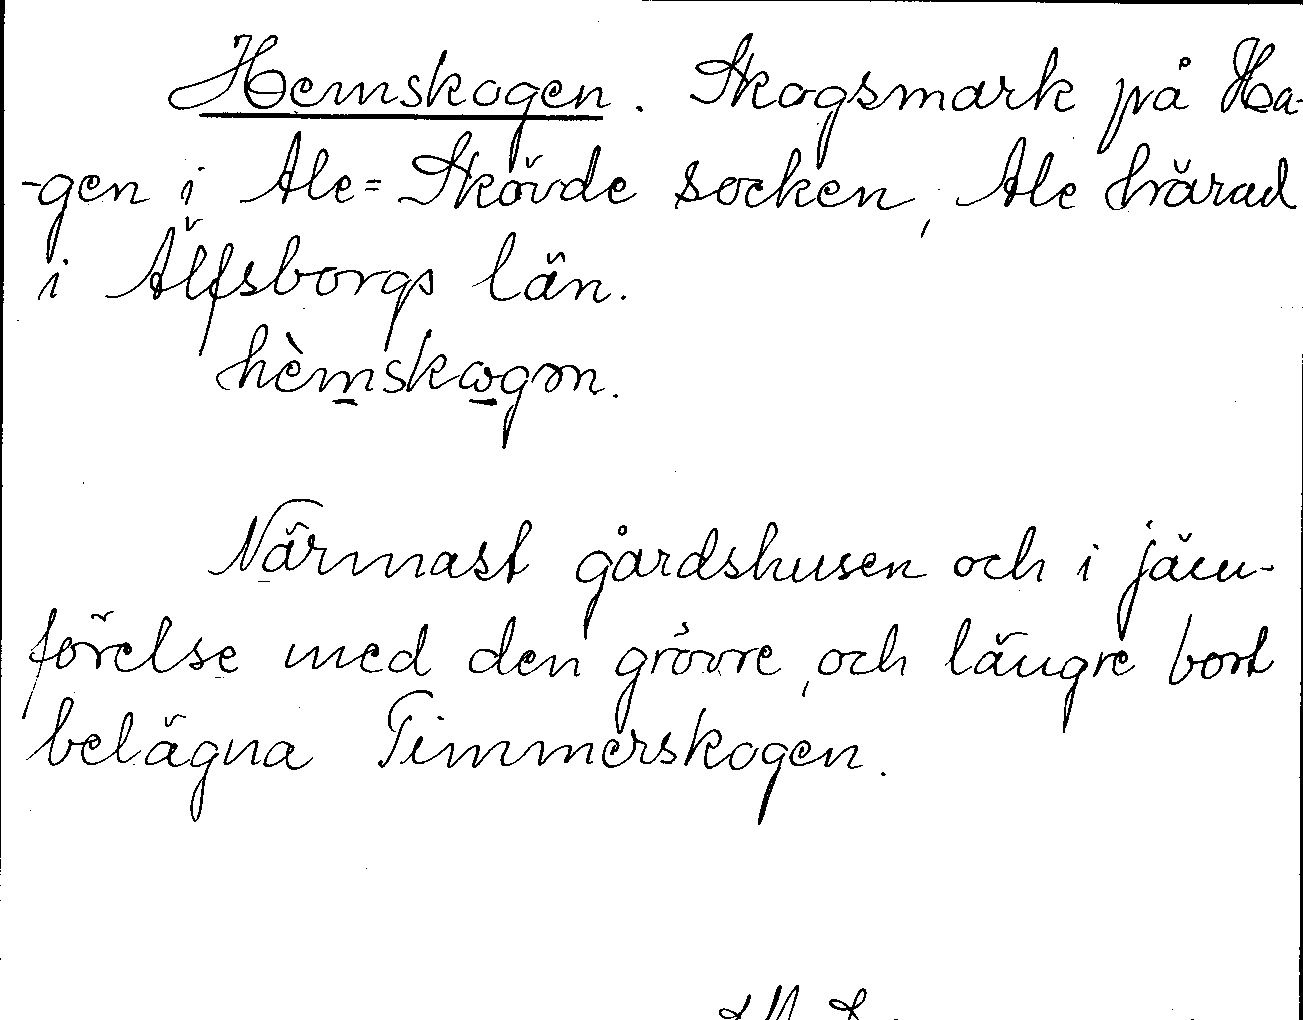 Hemskogen. Skogsmark på Ha-
-gen i Ale=Skövde socken, Ale härad
i Älfsborgs län.
hèmskωgən.
Närmast gårdshusen och i jäm-
förelse med den grövre, och längre bort
belägna Timmerskogen.